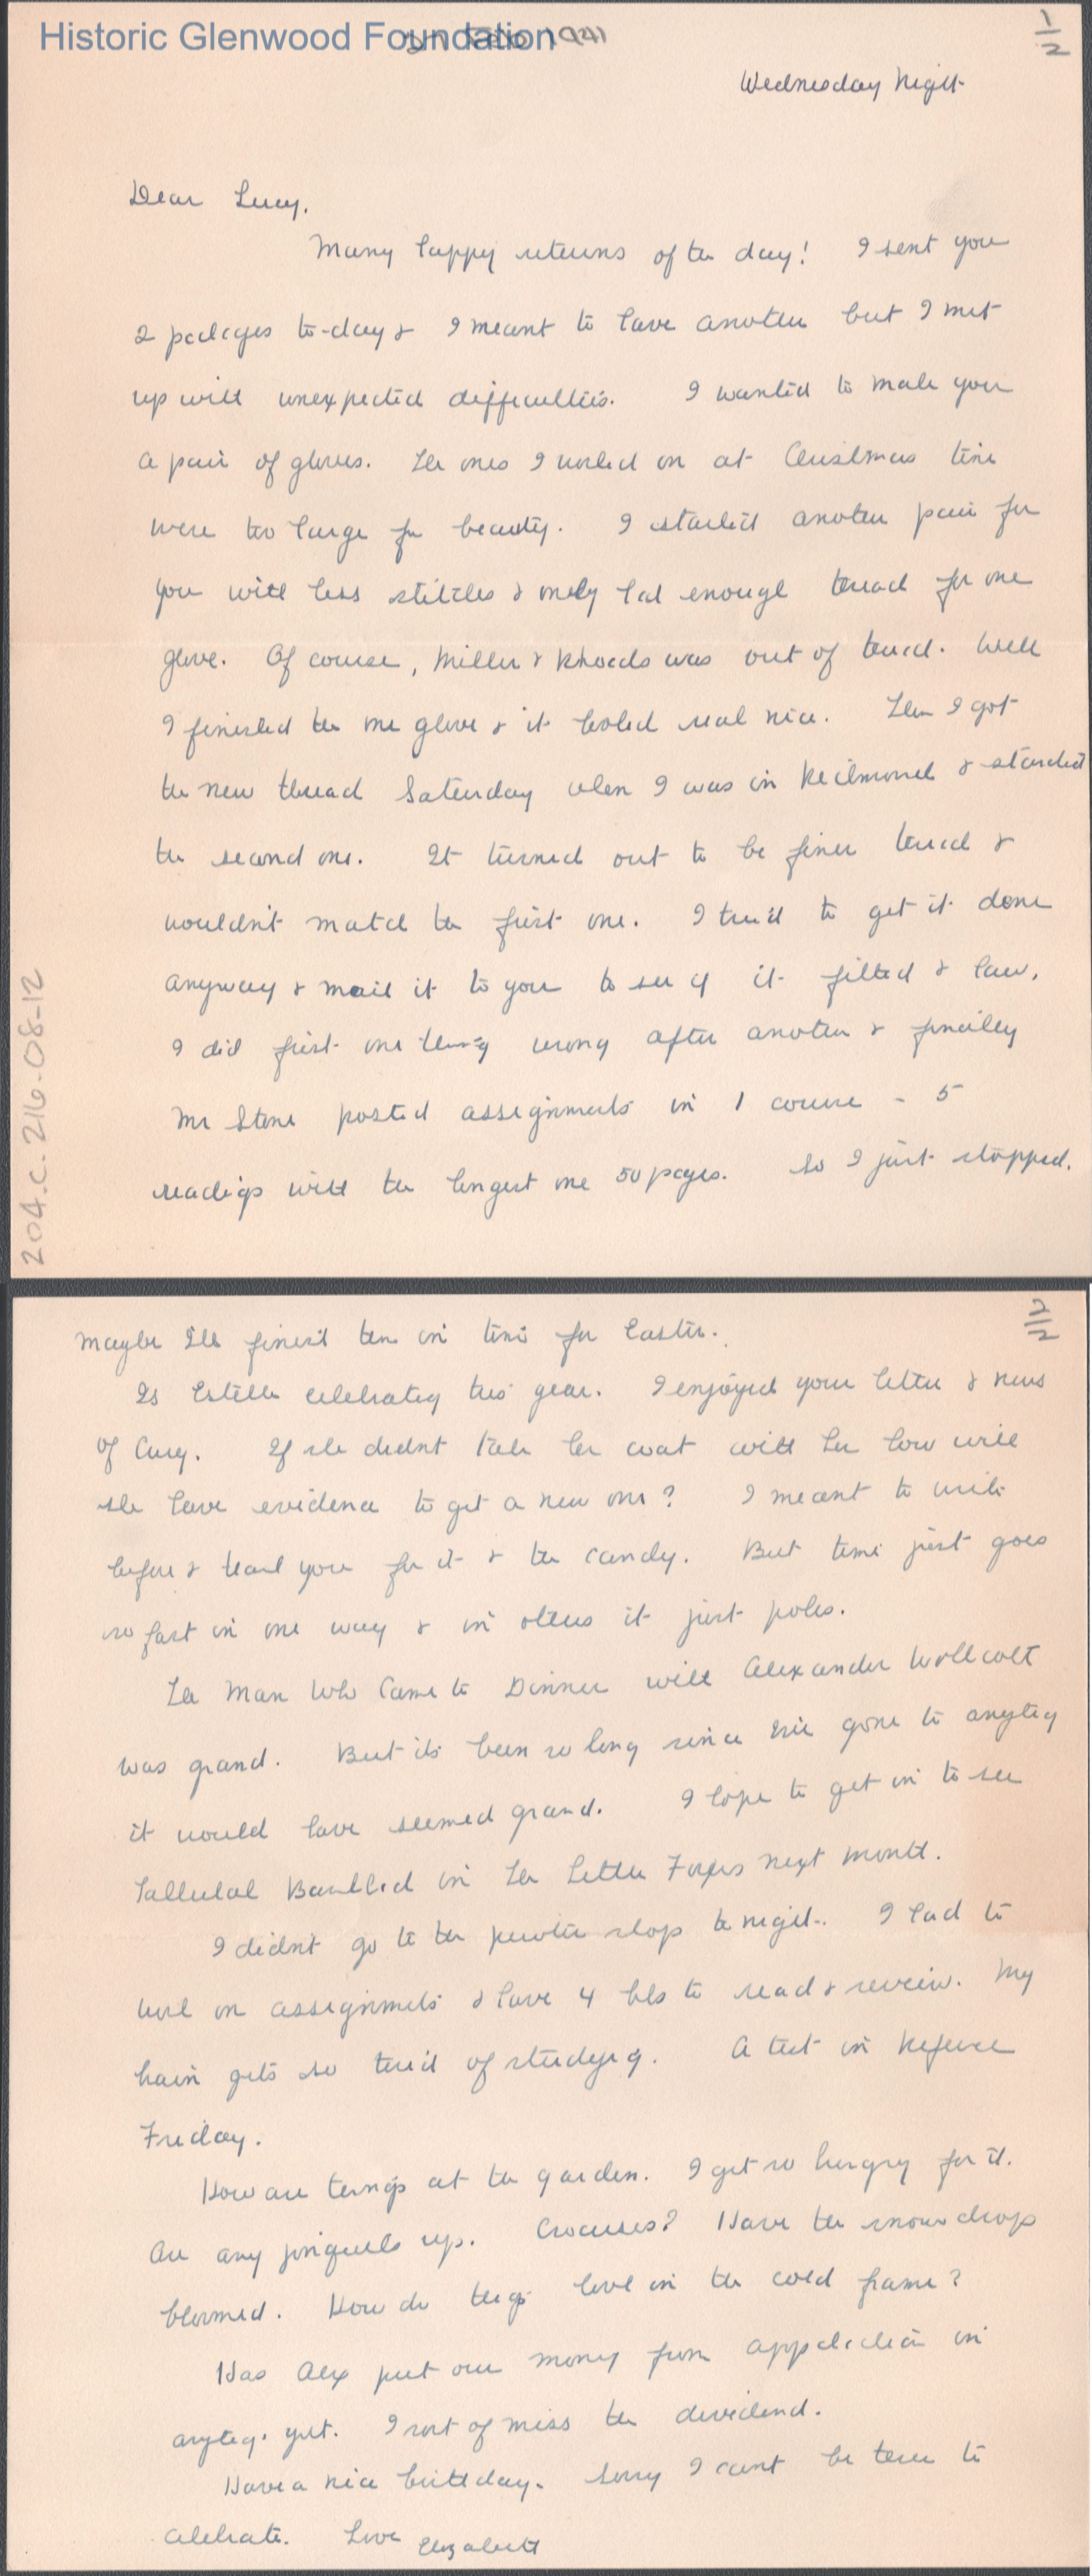 Historic Glenwood Foundation
1941
1/2
Wednesday Night
Dear Lucy,
Many happy returns of the day! I sent you
2 packages to-day & I meant to have another but I met
up with unexpected difficulties. I wanted to make you
a pair of gloves. The ones I worked on at Christmas time
were too large for beauty. I started another pair for
you with less stitches & only had enough thread for one
glove. Of course, Miller & Rhoads was out of thread. Well
I finished the one glove & it looked real nice. Then I got
the new thread Saturday when I was in Richmond & started
the second one. It turned out to be finer thread &
wouldn't match the first one. I tried to get it done
anyway & mail it to you to see if it fitted &
I did first one thing wrong after another & finally
Mr Stone posted assignments in 1 course - 5
readings with the longest one 50 pages. So I just stopped.
204.C.216-08-12
2/2
Maybe I'll finish them in time for Easter.
Is Estelle celebrating this year. I enjoyed your letter & news
of Cary. If she didnt take her coat with her how will
she have evidence to get a new one? I meant to write
before & thank you for it & the candy. But time just goes
so fast in one way & in others it just pokes.
The Man Who Came to Dinner with Alexander Wollcott
was grand. But its been so long since Ive gone to anything
it would have seemed grand. I hope to get in to see
Tallulah Bankhead in The Little Foxes next month.
I didn't go to the pewter shop tonight. I had to
work on assignments & have 4 bks to read & review. My
brain gets so tired of studying. A test in Reference
Friday.
How are things at the garden. I get so hungry for it.
Are any jonquils up. Crocuses? Have the snow drops
bloomed. How do things look in the cold frame?
Has Alex put our money from in
anything yet. I sort of miss the dividend.
Have a nice birthday. Sorry I cant be there to
celebrate. Love Elizabeth